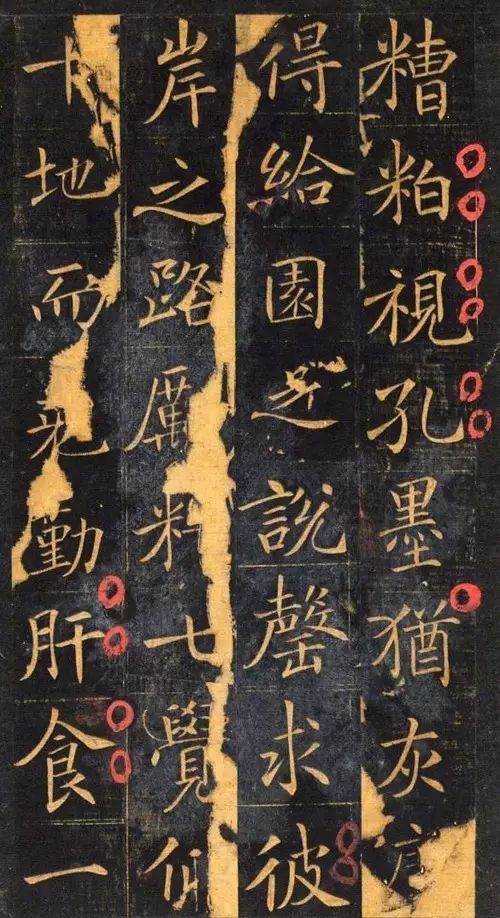 糟粕視孔墨猶灰
得給園之說罄求彼
岸之路厲七覺仰
十地而勤肝食一